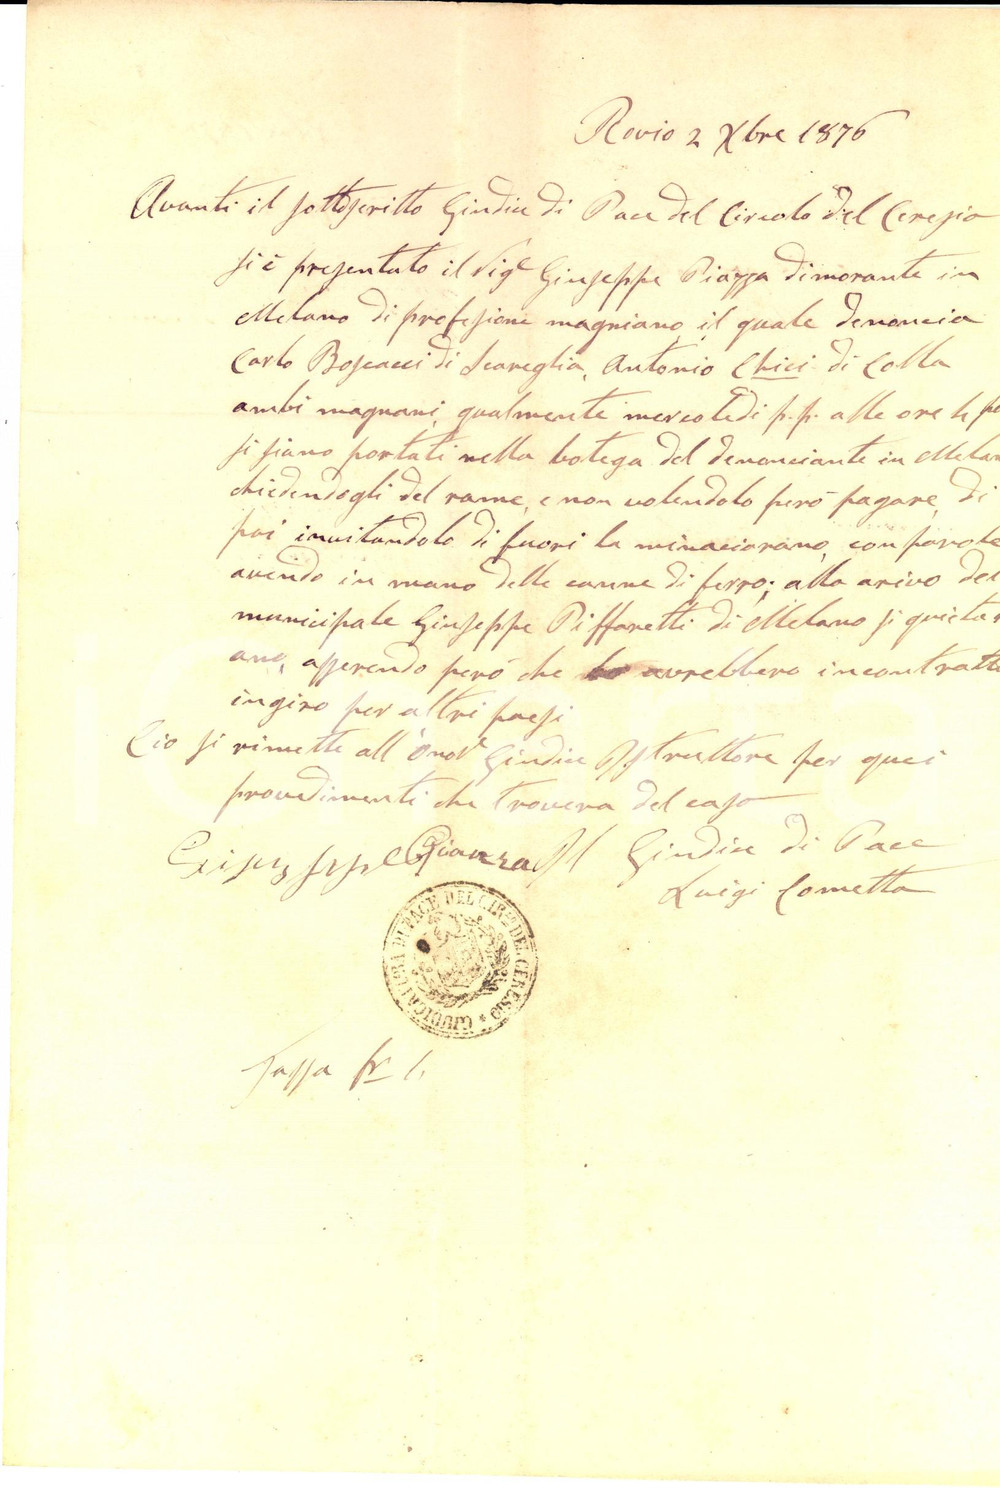 Rovio 2 Xbre 1876
Avanti il sottoscritto Giudice di Pace del Circolo del Ceresio
si è presentato il Sigr Giuseppe Piazza dimorante in
Melano di profesione magniano, il quale denoncia
Carlo Boscacci di Scareglia, Antonio Chici di Colla
ambi magnani, qualmente mercoledi p.p. alle ore
si siano portati nella botega del denonciante in Melan
chiedendogli del rame, e non volendolo però pagare, di
poi invitandolo di fuori lo minaciarano, con parole
avendo in mano delle canne di ferro; alla arivo del
municipale Giuseppe Piffaretti di Melano si quietar
ano, asserendo però che lo avrebbero incontratto
ingiro per altri paesi
Cio si rimette all'Onole Giudice Istruttore per quei
provedimenti che trovera del caso
Piazza Il Giudice di Pace
Luigi Cometta
GIUDICATURA DI PACE DEL CIR.º DEL CERESIO *
Tassa fr 1.